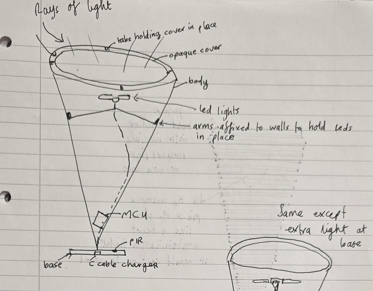 Rays of light
tabs holding cover in place
opaque cover
body
led lights
arms affixed to walls to hold leds
in place
MCU
PIR
base
C cable charger
Same except
extra light at
base